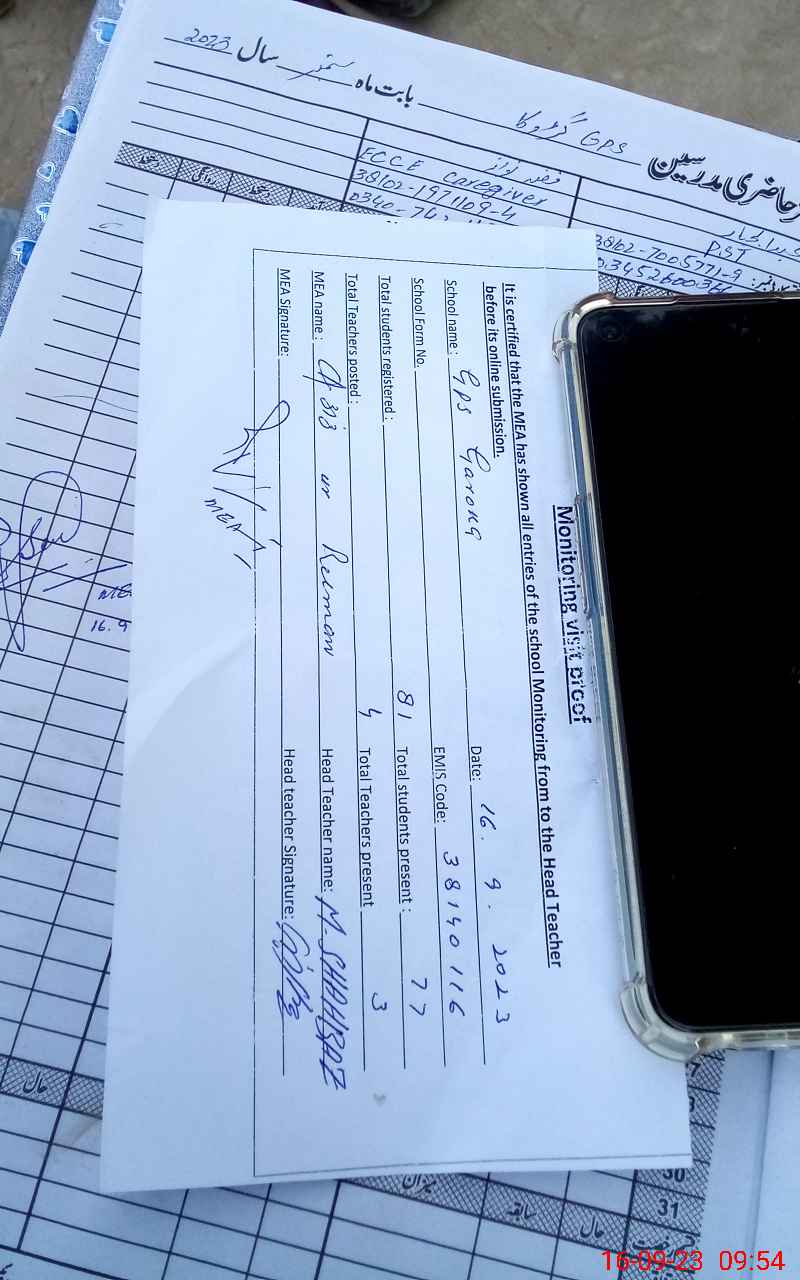 سال 2023
بابت ماہ ستمبر
GPS
حاضری مدرسین
ECCE Caregiver
38102-1971109-4
0340-742
PST
38102-7005771-9
03452600
Monitoring visit proof
It is certified that the MEA has shown all entries of the school Monitoring from to the Head Teacher
before its online submission.
School name : GPS Garoka Date: 16. 9. 2023
School Form No. EMIS Code: 38140116
Total students registered : 81 Total students present : 77
Total Teachers posted : 4 Total Teachers present 3
MEA name : Aziz ur Rehman Head Teacher name: M. SHAHBAZ
MEA Signature: Head teacher Signature:
MEA
16.9
حال
میزان
سابقہ
حال
30
31
16-09-23 09:54